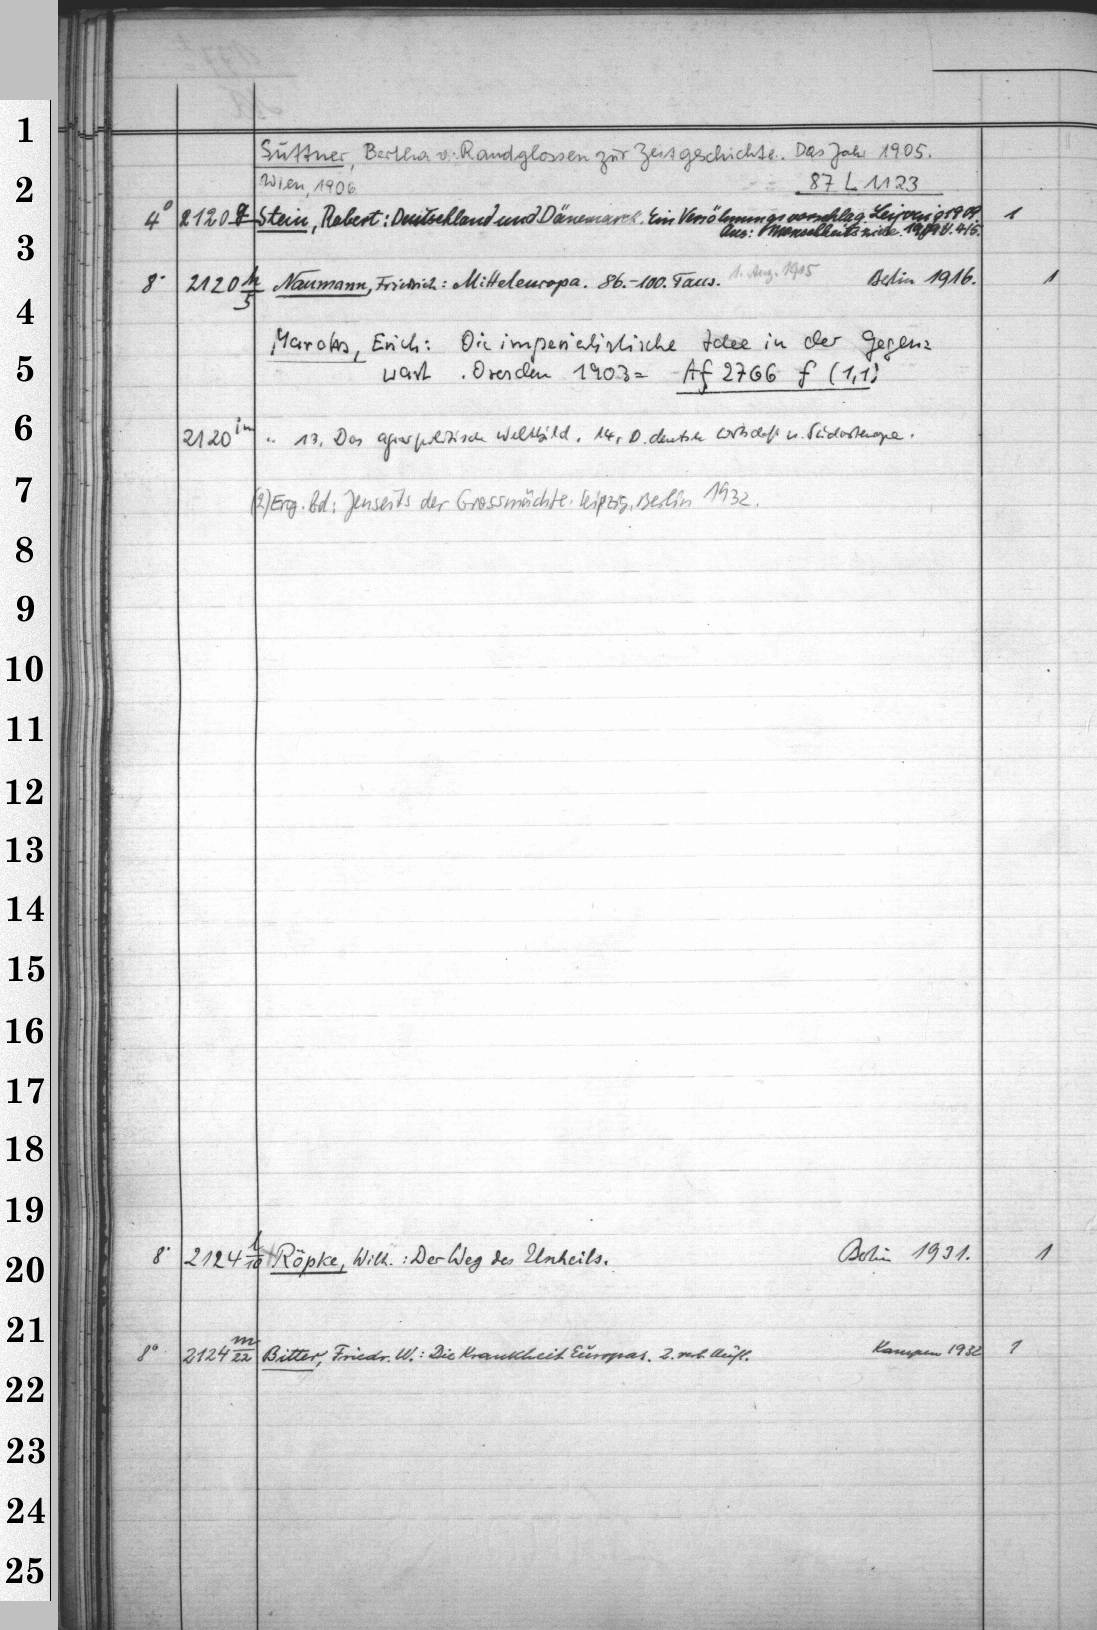 1
Suttner, Bertha v.: Randglossen zur Zeitgeschichte. Das Jahr 1905.
2
Wien, 1906 87 L 1123
4° 2120 g Stein, Robert: Deutschland und Dänemark. Ein Versöhnungsvorschlag. Leipzig 1909. 1
3
Aus: 1909 H. 4/5.
8° 2120 h/5 Naumann, Friedrich: Mitteleuropa. 86.-100. Taus. 1. Aug. 1915 Berlin 1916. 1
4
Marcks, Erich: Die imperialistische Idee in der Gegen=
5
wart. Dresden 1903 = Af 2766 f (1,1)
6
2120 im " 13. Das agrarpolitische Weltbild. 14. D. deutsche Wirtschaft u. Südosteuropa.
7
(2) Erg. Bd: Jenseits der Grossmächte. Leipzig, Berlin 1932.
8
9
10
11
12
13
14
15
16
17
18
19
20
8° 2124 l/10 Röpke, Wilh.: Der Weg des Unheils. Berlin 1931. 1
21
8° 2124 m/22 Bitter, Friedr. W.: Die Krankheit Europas. 2. verb. Aufl. Kampen 1932 1
22
23
24
25